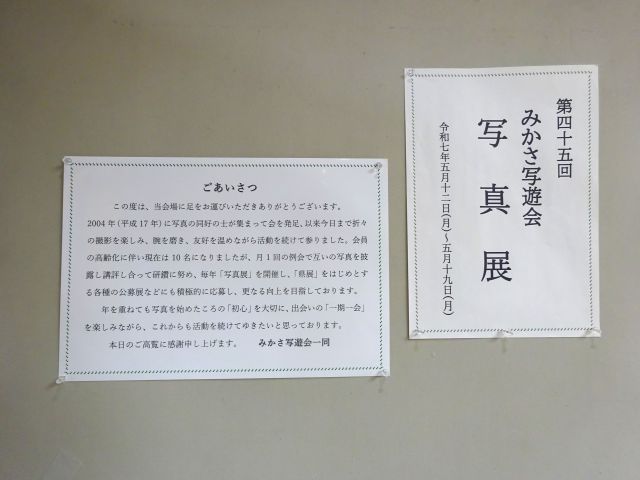 第四十五回
みかさ写遊会
写真展
令和七年五月十二日(月)～五月十九日(月)
ごあいさつ
この度は、当会場に足をお運びいただきありがとうございます。
2004年(平成17年)に写真の同好の士が集まって会を発足、以来今日まで折々
の撮影を楽しみ、腕を磨き、友好を温めながら活動を続けて参りました。会員
の高齢化に伴い現在は10名になりましたが、月1回の例会で互いの写真を披
露し講評し合って研鑽に努め、毎年「写真展」を開催し、「県展」をはじめとす
る各種の公募展などにも積極的に応募し、更なる向上を目指しております。
年を重ねても写真を始めたころの「初心」を大切に、出会いの「一期一会」
を楽しみながら、これからも活動を続けてゆきたいと思っております。
本日のご高覧に感謝申し上げます。 みかさ写遊会一同